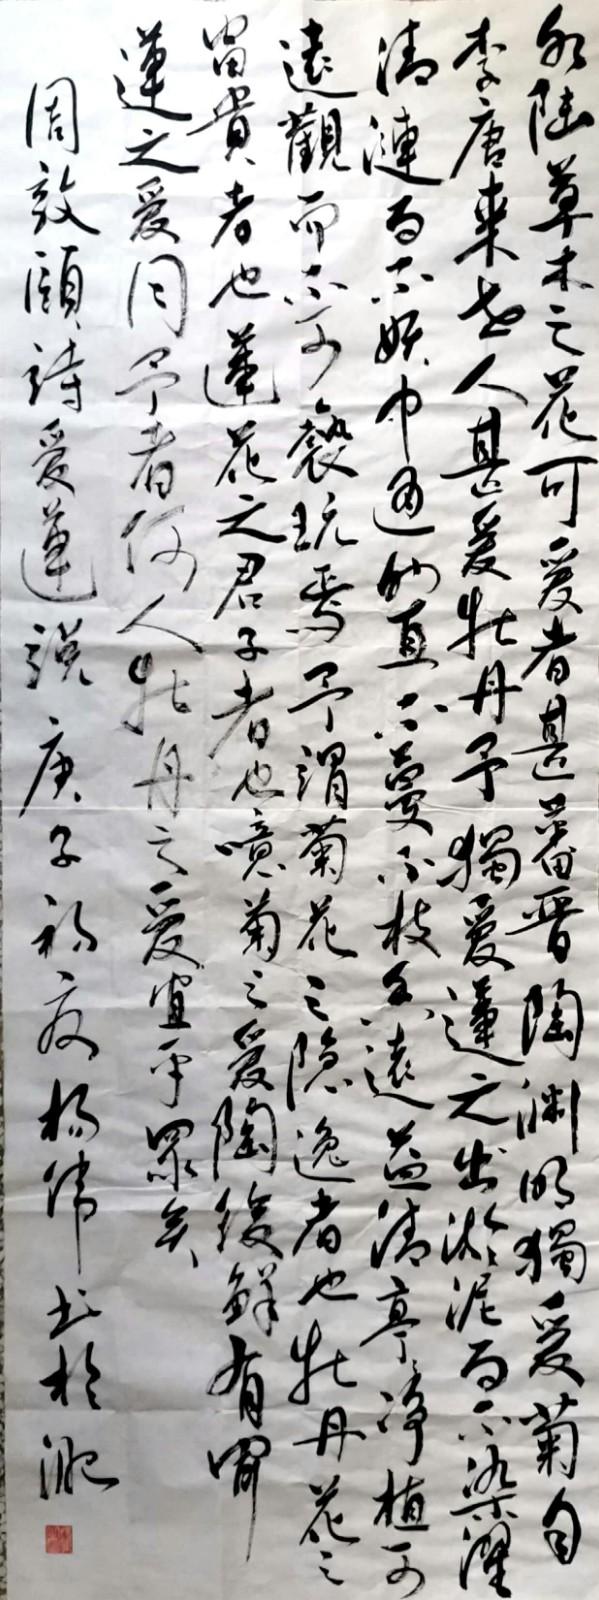 水陸草木之花可愛者甚蕃晉陶淵明獨愛菊自
李唐來世人甚愛牡丹予獨愛蓮之出淤泥而不染濯
清漣而不妖中通外直不蔓不枝香遠益清亭淨植可
遠觀而不可褻玩焉予謂菊花之隱逸者也牡丹花之
富貴者也蓮花之君子者也噫菊之愛陶後鮮有聞
蓮之愛同予者何人牡丹之愛宜乎眾矣
周敦頤詩愛蓮說庚子初夏楊偉書於淝